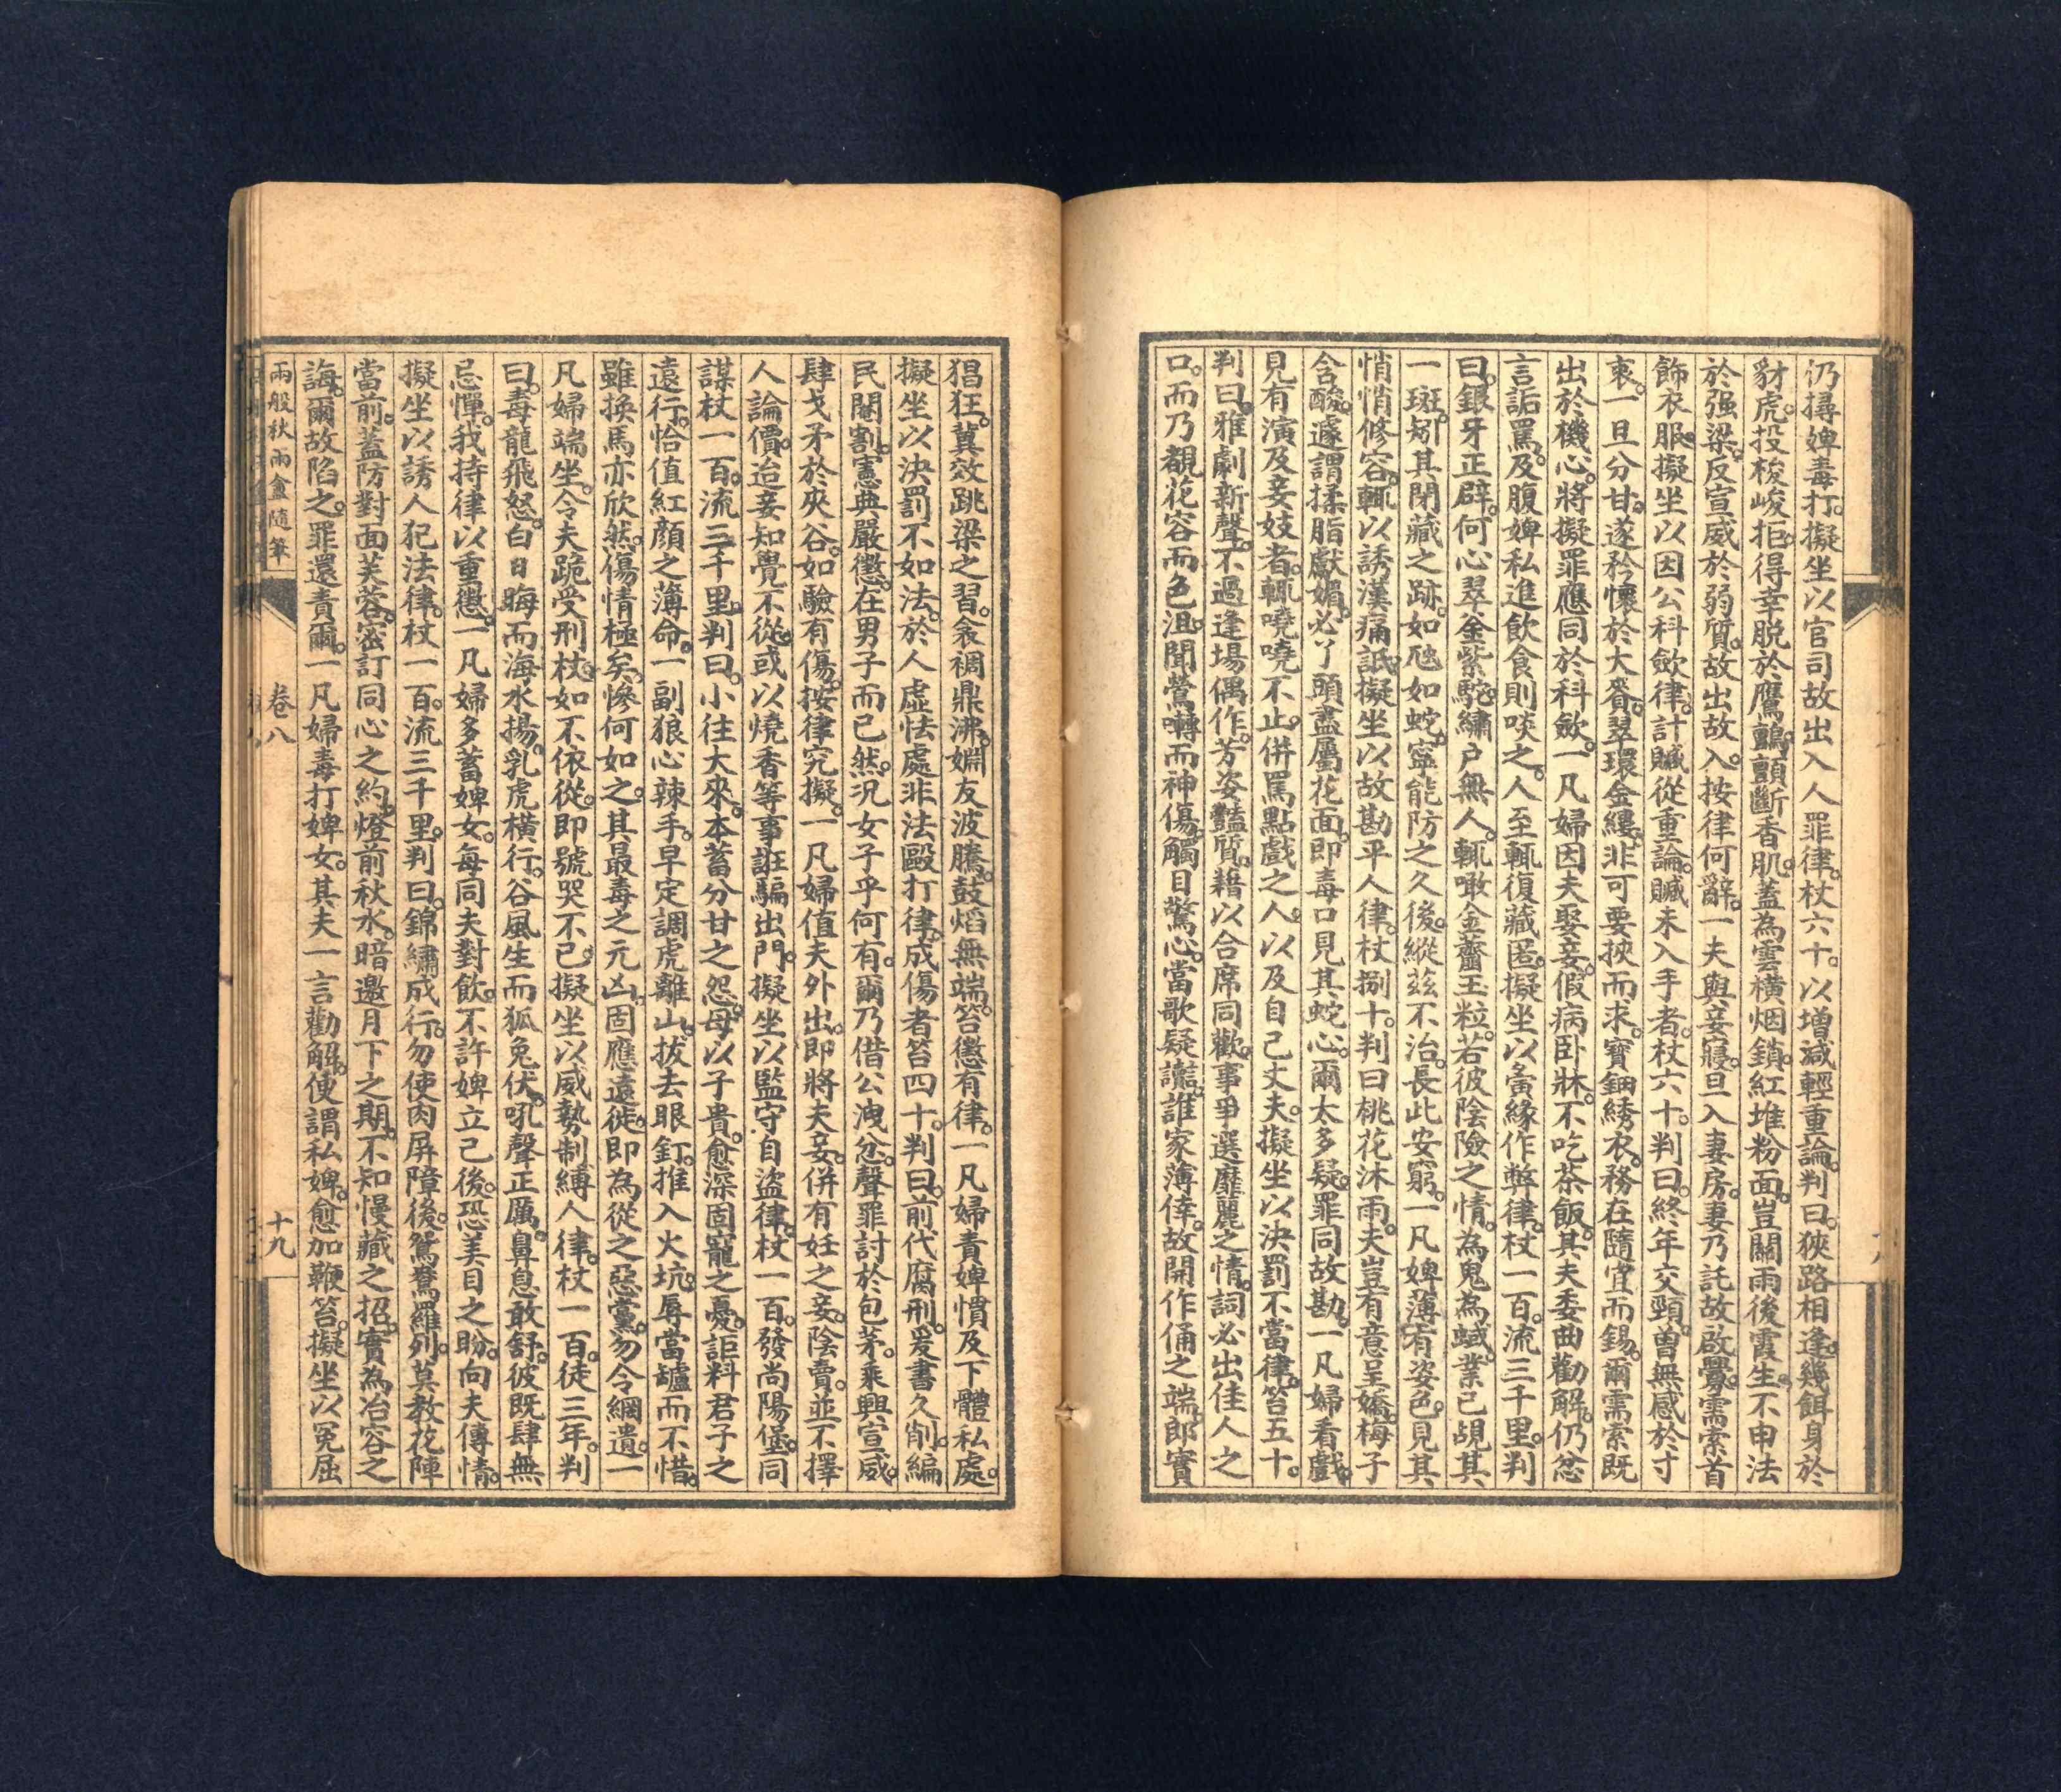 仍撏婢毒打。擬坐以官司故出入人罪律。杖六十。以增減輕重論。判曰。狹路相逢。幾餌身於
豺虎。投梭峻拒。得幸脫於鷹鸇。顫斷香肌。蓋為雲橫烟鎖。紅堆粉面。豈關雨後霞生。不申法
於强梁。反宣威於弱質。故出故入。按律何辭。一夫與妾寢。旦入妻房。妻乃託故啟釁。需索首
飾衣服。擬坐以因公科斂律。計贓從重論。贓未入手者。杖六十。判曰。終年交頸。曾無感於寸
衷。一旦分甘。遂矜懷於大賚。翠環金縷。非可要挾而求。寶鈿綉衣。務在隨宜而錫。爾需索既
出於機心。將擬罪應同於科斂。一凡婦因夫娶妾。假病卧牀。不吃茶飯。其夫委曲勸解。仍忿
言詬罵。及腹婢私進飲食則啖之。人至輒復藏匿。擬坐以夤緣作弊律。杖一百。流三千里。判
曰。銀牙正辟。何心翠釜紫駝。繡户無人。輒噉金虀玉粒。若彼陰險之情。為鬼為蜮。業已覘其
一斑。矧其閉藏之跡。如虺如蛇。寧能防之久後。縱茲不治。長此安窮。一凡婢薄有姿色。見其
悄悄修容。輒以誘漢痛詆。擬坐以故勘平人律。杖捌十。判曰桃花沐雨。夫豈有意呈嬌。梅子
含酸。遽謂揉脂獻媚。必丫頭盡屬花面。即毒口見其蛇心。爾太多疑。罪同故勘。一凡婦看戲。
見有演及妾妓者。輒嘵嘵不止。併罵點戲之人。以及自己丈夫。擬坐以決罰不當律。笞五十。
判曰。雅劇新聲。不過逢場偶作。芳姿豔質。藉以合席同歡。事爭選靡麗之情。詞必出佳人之
口。而乃覩花容而色沮。聞鶯囀而神傷。觸目驚心。當歌疑讟。誰家薄倖。故開作俑之端。郎實
猖狂。冀效跳梁之習。衾裯鼎沸。婣友波騰。鼓焰無端。笞懲有律。一凡婦責婢慣及下體私處。
擬坐以決罰不如法。於人虛怯處非法毆打律。成傷者笞四十。判曰。前代腐刑。爰書久削。編
民閹割。憲典嚴懲。在男子而已然。況女子乎何有。爾乃借公洩忿。聲罪討於包茅。乘興宣威。
肆戈矛於夾谷。如驗有傷。按律究擬。一凡婦值夫外出。即將夫妾。併有妊之妾。陰賣。並不擇
人論價。迨妾知覺不從。或以燒香等事誑騙出門。擬坐以監守自盜律。杖一百。發尚陽堡。同
謀杖一百。流三千里。判曰。小往大來。本蓄分甘之怨。母以子貴。愈深固寵之憂。詎料君子之
遠行。恰值紅顏之薄命。一副狼心辣手。早定調虎離山。拔去眼釘。推入火坑。辱當罏而不惜。
雖換馬亦欣然。傷情極矣。慘何如之。其最毒之元凶。固應遠徙。即為從之惡黨。勿令網遺。一
凡婦端坐。令夫跪受刑杖。如不依從。即號哭不已。擬坐以威勢制縛人律。杖一百。徒三年。判
曰。毒龍飛怒。白日晦而海水揚。乳虎橫行。谷風生而狐兔伏。吼聲正厲。鼻息敢舒。彼既肆無
忌憚。我持律以重懲。一凡婦多蓄婢女。每同夫對飲。不許婢立己後。恐美目之盼。向夫傳情。
擬坐以誘人犯法律。杖一百。流三千里。判曰。錦繡成行。勿使肉屏障後。鴛鴦羅列。莫教花陣
當前。蓋防對面芙蓉。密訂同心之約。燈前秋水。暗邀月下之期。不知慢藏之招。實為冶容之
誨。爾故陷之。罪還責爾。一凡婦毒打婢女。其夫一言勸解。便謂私婢。愈加鞭笞。擬坐以冤屈
兩般秋雨盦隨筆
卷八
十九